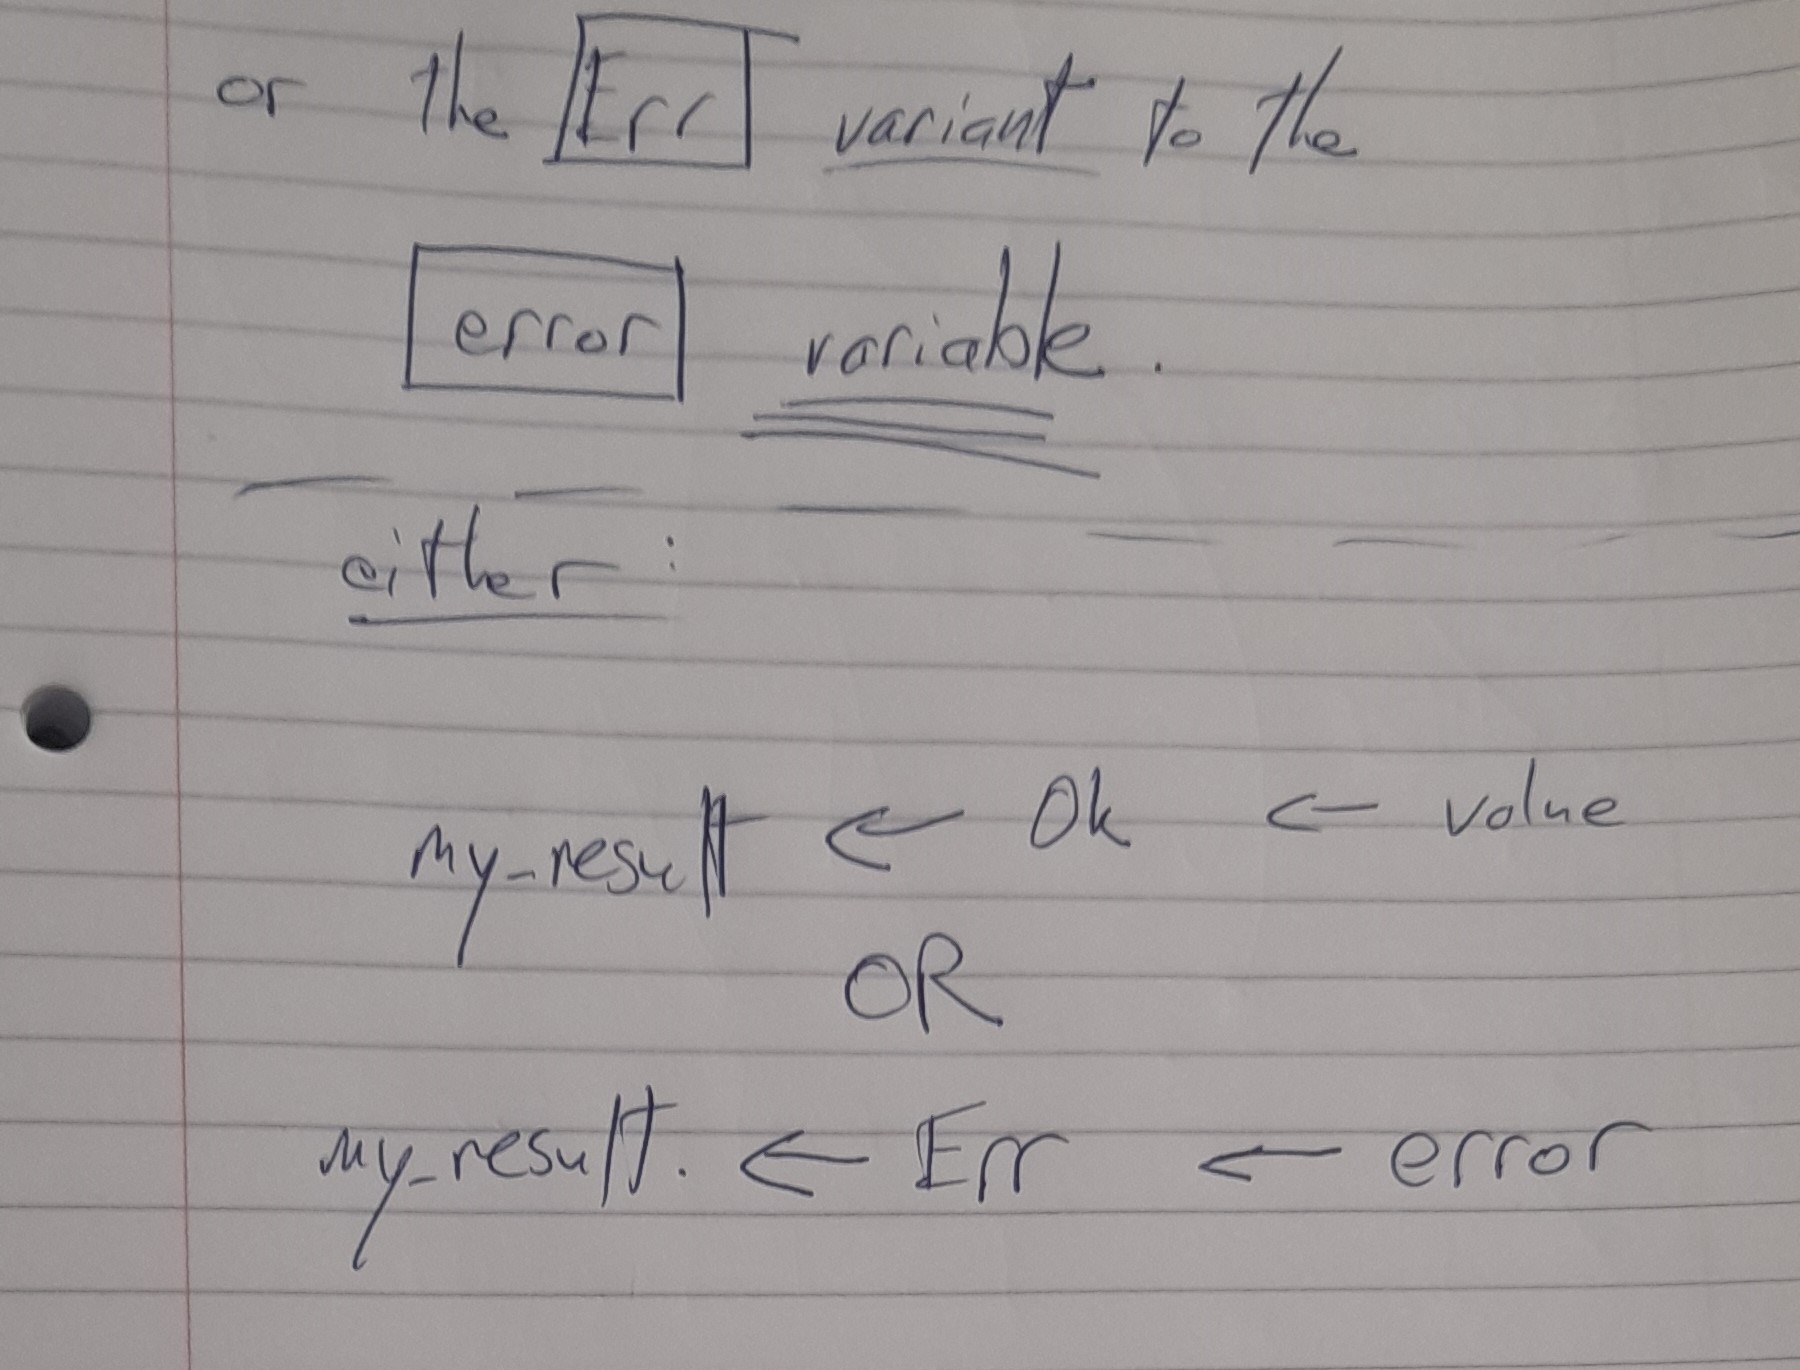 or the Err variant to the
error variable.
either:
my_result ← Ok ← value
OR
my_result. ← Err ← error